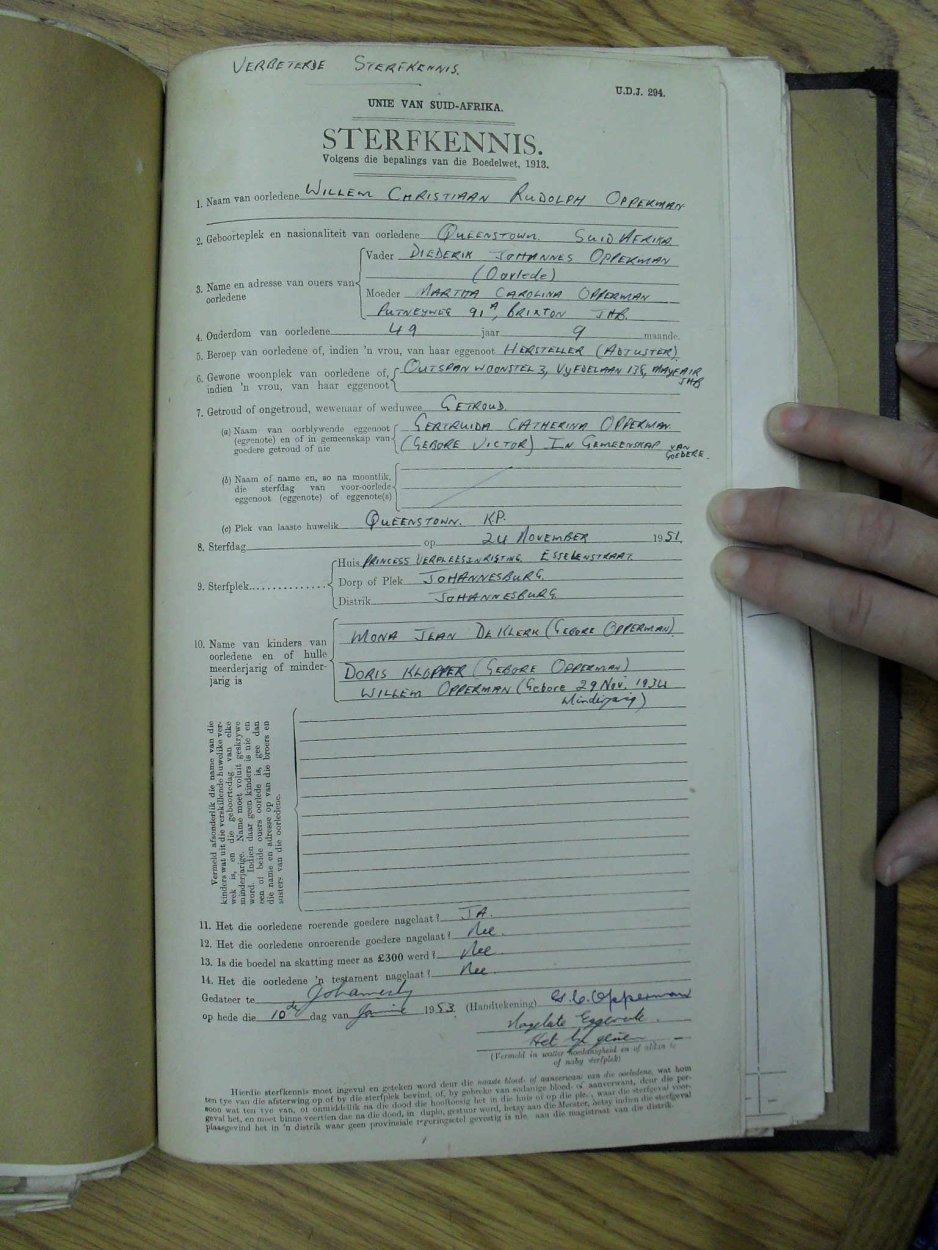 VERBETERDE STERFKENNIS.
U.D.J. 294.
UNIE VAN SUID-AFRIKA.
STERFKENNIS.
Volgens die bepalings van die Boedelwet, 1913.
1. Naam van oorledene WILLEM CHRISTIAAN RUDOLPH OPPERMAN
2. Geboorteplek en nasionaliteit van oorledene QUEENSTOWN. SUID AFRIKA
3. Name en adresse van ouers van oorledene
Vader DIEDERIK JOHANNES OPPERMAN
(Oorlede)
Moeder MARTHA CAROLINA OPPERMAN
PUTNEYWEG 91A, BRIXTON JHB.
4. Ouderdom van oorledene 49 jaar 9 maande.
5. Beroep van oorledene of, indien 'n vrou, van haar eggenoot HERSTELLER (ADJUSTER)
6. Gewone woonplek van oorledene of, indien 'n vrou, van haar eggenoot
OUTSPAN WOONSTEL 3, VYFDELAAN 178, MAYFAIR
JHB
7. Getroud of ongetroud, wewenaar of weduwee GETROUD.
(a) Naam van oorblywende eggenoot (eggenote) en of in gemeenskap van goedere getroud of nie
GERTRUIDA CATHERINA OPPERMAN
(GEBORE VICTOR) IN GEMEENSKAP VAN
GOEDERE.
(b) Naam of name en, so na moontlik, die sterfdag van voor-oorlede eggenoot (eggenote) of eggenote(s)
(c) Plek van laaste huwelik QUEENSTOWN. KP.
8. Sterfdag op 24 NOVEMBER 1951.
9. Sterfplek
Huis PRINCESS VERPLEEGINRIGTING ESSELENSTRAAT.
Dorp of Plek JOHANNESBURG.
Distrik JOHANNESBURG
10. Name van kinders van oorledene en of hulle meerderjarig of minderjarig is
MONA JEAN DE KLERK (GEBORE OPPERMAN)
DORIS KLOPPER (GEBORE OPPERMAN)
WILLEM OPPERMAN (Gebore 29 Nov. 1934
Minderjarig)
Vermeld afsonderlik die name van die
kinders wat uit die verskillende huwelike verwek
is, en die geboortedag van elke
minderjarige. Name moet voluit geskrywe
word. Indien daar geen kinders is nie en
een of beide ouers oorlede is, gee dan
die name en adresse op van die broers en
susters van die oorledene.
11. Het die oorledene roerende goedere nagelaat? JA.
12. Het die oorledene onroerende goedere nagelaat? Nee.
13. Is die boedel na skatting meer as £300 werd? Nee.
14. Het die oorledene 'n testament nagelaat? Nee.
Gedateer te Johannesb
op hede die 10de dag van Junie 1953 (Handtekening) G.C. Opperman
Nagelate Eggenote.
(Vermeld in watter hoedanigheid en of aldan te
of naby sterfplek)
Hierdie sterfkennis moet ingevul en geteken word deur die naaste bloed- of aanverwant van die oorledene, wat hom
ten tye van die afsterwing op of by die sterfplek bevind, of, by gebreke van sodanige bloed- of aanverwant, deur die persoon
wat ten tye van, of onmiddellik na die dood die hoofgesag het in die huis of op die plek, waar die sterfgeval voorgeval
het, en moet binne veertien dae na die dood, in duplo, gestuur word, hetsy aan die Meester, hetsy indien die sterfgeval
plaasgevind het in 'n distrik waar geen provinsiale regeringsetel gevestig is nie aan die magistraat van die distrik.